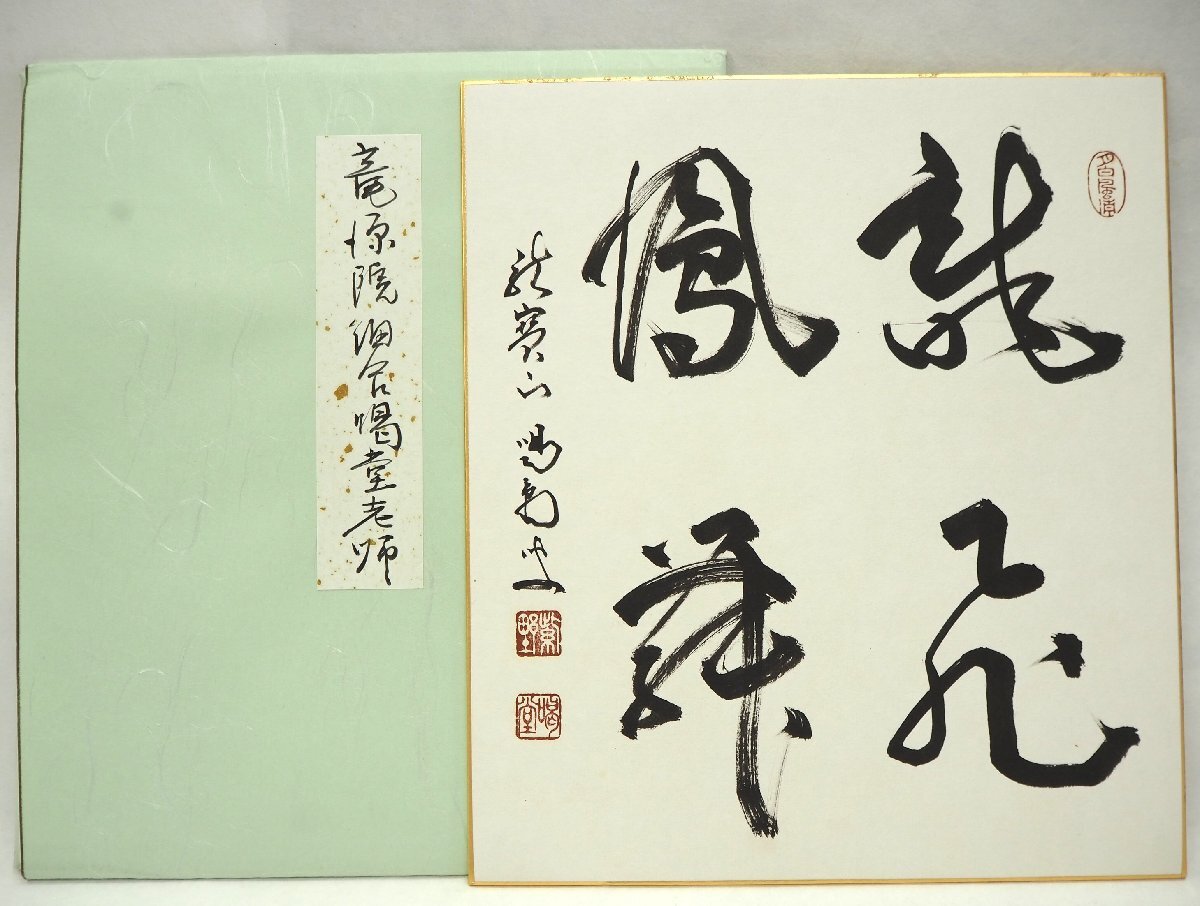 竜源院細合喝堂老师
龍飛
鳳舞
龍寳山
紫野
喝堂